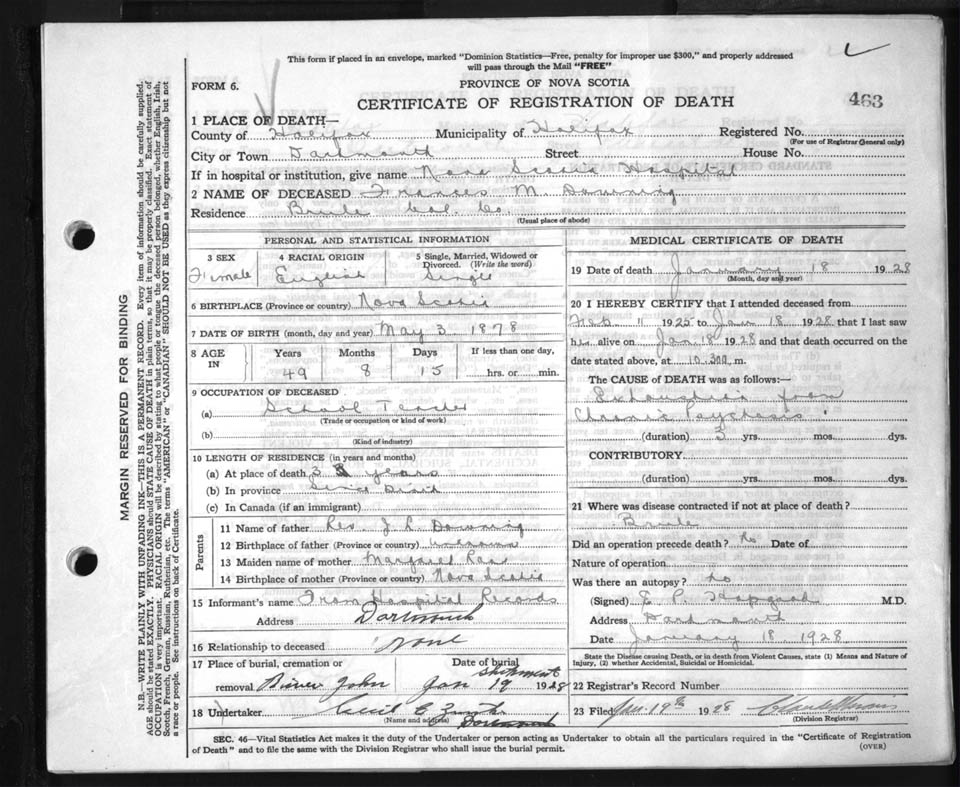 This form if placed in an envelope, marked "Dominion Statistics—Free, penalty for improper use $300," and properly addressed
will pass through the Mail "FREE"
FORM 6.
PROVINCE OF NOVA SCOTIA
CERTIFICATE OF REGISTRATION OF DEATH
463
1 PLACE OF DEATH—
County of Halifax Municipality of Halifax Registered No.
(For use of Registrar General only)
City or Town Dartmouth Street House No.
If in hospital or institution, give name Nova Scotia Hospital
2 NAME OF DECEASED Frances M. Downing
Residence Brule Col. Co.
(Usual place of abode)
PERSONAL AND STATISTICAL INFORMATION
3 SEX 4 RACIAL ORIGIN 5 Single, Married, Widowed or
Divorced. (Write the word)
Female English Single
6 BIRTHPLACE (Province or country) Nova Scotia
7 DATE OF BIRTH (month, day and year) May 3 1878
8 AGE IN Years Months Days If less than one day,
49 8 15 hrs. or min.
9 OCCUPATION OF DECEASED
(a) School Teacher
(Trade or occupation or kind of work)
(b)
(Kind of industry)
10 LENGTH OF RESIDENCE (in years and months)
(a) At place of death 3 years
(b) In province Since Birth
(c) In Canada (if an immigrant)
Parents
11 Name of father Rev. J. R. Downing
12 Birthplace of father (Province or country) Unknown
13 Maiden name of mother Margaret Rae
14 Birthplace of mother (Province or country) Nova Scotia
15 Informant's name From Hospital Records
Address Dartmouth
16 Relationship to deceased None
17 Place of burial, cremation or Date of burial
shipment
removal River John Jan 19 1928
18 Undertaker Cecil E.
(Name and address) Dartmouth
MEDICAL CERTIFICATE OF DEATH
19 Date of death January 18 1928
(Month, day and year)
20 I HEREBY CERTIFY that I attended deceased from
Feb. 11 1925 to Jan 18 1928 that I last saw
her alive on Jan 18 1928 and that death occurred on the
date stated above, at 10.30 a.m.
The CAUSE OF DEATH was as follows:—
Exhaustion from
Chronic Psychosis
(duration) 3 yrs. mos. dys.
CONTRIBUTORY
(duration) yrs. mos. dys.
21 Where was disease contracted if not at place of death?
Brule
Did an operation precede death? No Date of
Nature of operation
Was there an autopsy? No
(Signed) E. P. Hapgood M.D.
Address Dartmouth
Date January 18 1928
State the Disease causing Death, or in death from Violent Causes, state (1) Means and Nature of
Injury, (2) whether Accidental, Suicidal or Homicidal.
22 Registrar's Record Number
23 Filed Jan. 19th 1928
(Division Registrar)
SEC. 46—Vital Statistics Act makes it the duty of the Undertaker or person acting as Undertaker to obtain all the particulars required in the "Certificate of Registration
of Death" and to file the same with the Division Registrar who shall issue the burial permit.
(OVER)
MARGIN RESERVED FOR BINDING
N.B.—WRITE PLAINLY WITH UNFADING INK—THIS IS A PERMANENT RECORD. Every item of information should be carefully supplied.
AGE should be stated EXACTLY. PHYSICIANS should STATE CAUSE OF DEATH in plain terms, so that it may be properly classified. Exact statement of
OCCUPATION is very important. RACIAL ORIGIN will be described by stating to what people or tongue the deceased person belonged, whether English, Irish,
Scotch, French, German, Russian, Ruthenian, etc. The terms "AMERICAN" or "CANADIAN" SHOULD NOT BE USED as they express citizenship but not
a race or people. See instructions on back of Certificate.